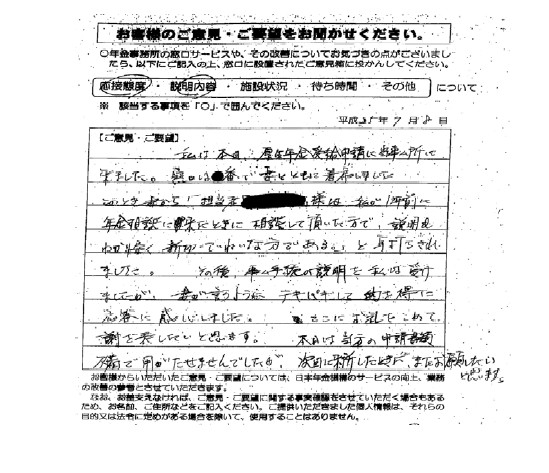 お客様のご意見・ご要望をお聞かせください。
○年金事務所の窓口サービスや、その改善についてお気づきの点がございまし
たら、以下にご記入の上、窓口に設置されたご意見箱に投かんしてください。
応接態度・説明内容・施設状況・待ち時間・その他 について
※ 該当する事項を「○」で囲んでください。
平成25年7月8日
【ご意見・ご要望】
私は本日、厚生年金受給申請に当事ム所に
来ました。窓口は 番で妻とともに着席しました
このとき妻から「担当 様は私が1年前に
年金相談に来たときに相談して頂いた方で、説明も
わかり安く親切でていねいな方である。」と耳打ちされ
ました。 その後、事ム手続の説明を私は受け
ましたが、妻が言うように テキパキして 的を得た
応答に感心しました。 ここにお礼をこめて
謝を表したいと思います。 本日は当方の申請書類
不備で用がたせませんでしたが、次回に来所したときに、またお願いしたい
と思います。
お客様からいただいたご意見・ご要望については、日本年金機構のサービスの向上、業務
の改善の参考とさせていただきます。
なお、お差支えなければ、ご意見・ご要望に関する事実確認をさせていただく場合もある
ため、お名前、ご住所などをご記入ください。ご提供いただきました個人情報は、それらの
目的又は法令に定めがある場合を除いて、使用することはありません。